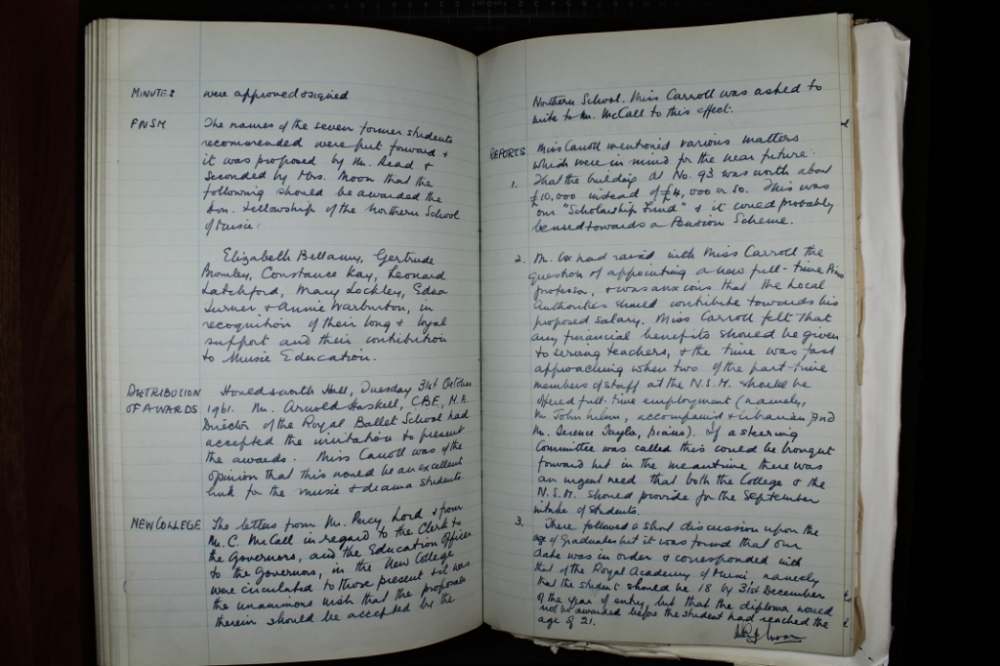 MINUTES were approved & signed
FNSM The names of the seven former students
recommended were put forward &
it was proposed by Mr. Read &
seconded by Mrs. Moon that the
following should be awarded the
Hon. Fellowship of the Northern School
of Music:
Elizabeth Bellamy, Gertrude
Bromley, Constance Kay, Leonard
Latchford, Mary Lockley, Edna
Turner & Annie Warburton, in
recognition of their long & loyal
support and their contribution
to Music Education.
DISTRIBUTION Houldsworth Hall, Tuesday 31st October
OF AWARDS 1961. Mr. Arnold Haskell, C.B.E., M.A.
Director of the Royal Ballet School had
accepted the invitation to present
the awards. Miss Carroll was of the
opinion that this would be an excellent
link for the music & drama students.
NEW COLLEGE The letters from Mr. Percy Lord & from
Mr. C. McCall in regard to the Clerk to
the Governors, and the Education Officer
to the Governors, in the New College
were circulated to those present & it was
the unanimous wish that the proposals
therein should be accepted by the
Northern School. Miss Carroll was asked to
write to Mr. McCall to this effect.
REPORTS Miss Carroll mentioned various matters
which were in mind for the near future.
1. That the building at No. 93 was worth about
£10,000 instead of £4,000 or so. This was
our "Scholarship Fund" & it could probably
be used towards a Pension Scheme.
2. Mr. Cox had raised with Miss Carroll the
question of appointing a new full-time
professor, & was anxious that the Local
Authorities should contribute towards his
proposed salary. Miss Carroll felt that
any financial benefits should be given
to serving teachers, & the time was fast
approaching when two of the part-time
members of staff at the N.S.M. should be
offered full-time employment (namely,
Mr. John Wilson, accompanist & librarian, and
Mr. Terence Taylor, piano). If a steering
Committee was called this could be brought
forward but in the meantime there was
an urgent need that both the College & the
N.S.M. should provide for the September
intake of students.
3. There followed a short discussion upon the
age of Graduates but it was found that our
date was in order & corresponded with
that of the Royal Academy of Music, namely
that the student should be 18 by 31st December
of the year of entry, but that the diploma would
not be awarded before the student had reached the
age of 21.